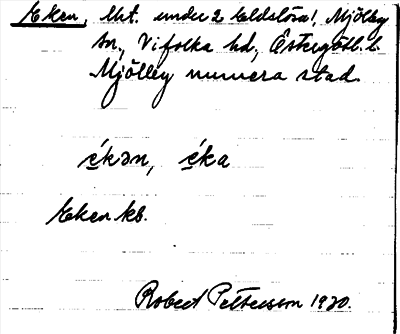 Eken, lht. under 2 Eldslösa!, Mjölby
sn., Vifolka hd, Östergötl. l.
Mjölby numera stad.
ékən, éka
Eken kb.
Robert Pettersson 1920.